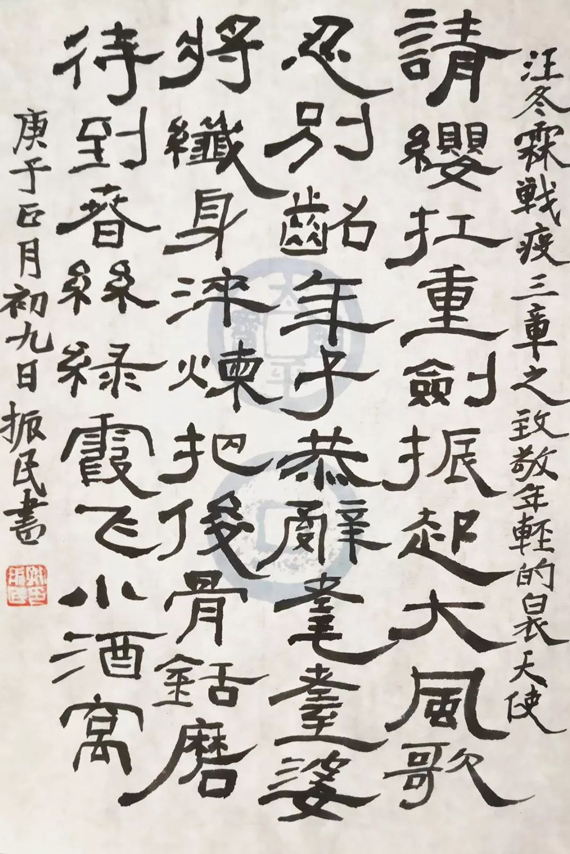 汪冬霖戦疫三章之致敬年輕的白衣天使
請纓扛重劍振起大風歌
忍別齠年子恭辭耄耋婆
將纖身淬煉把俊骨銛磨
待到春絲綠霞飞小酒窩
庚子正月初九日振民書
太平